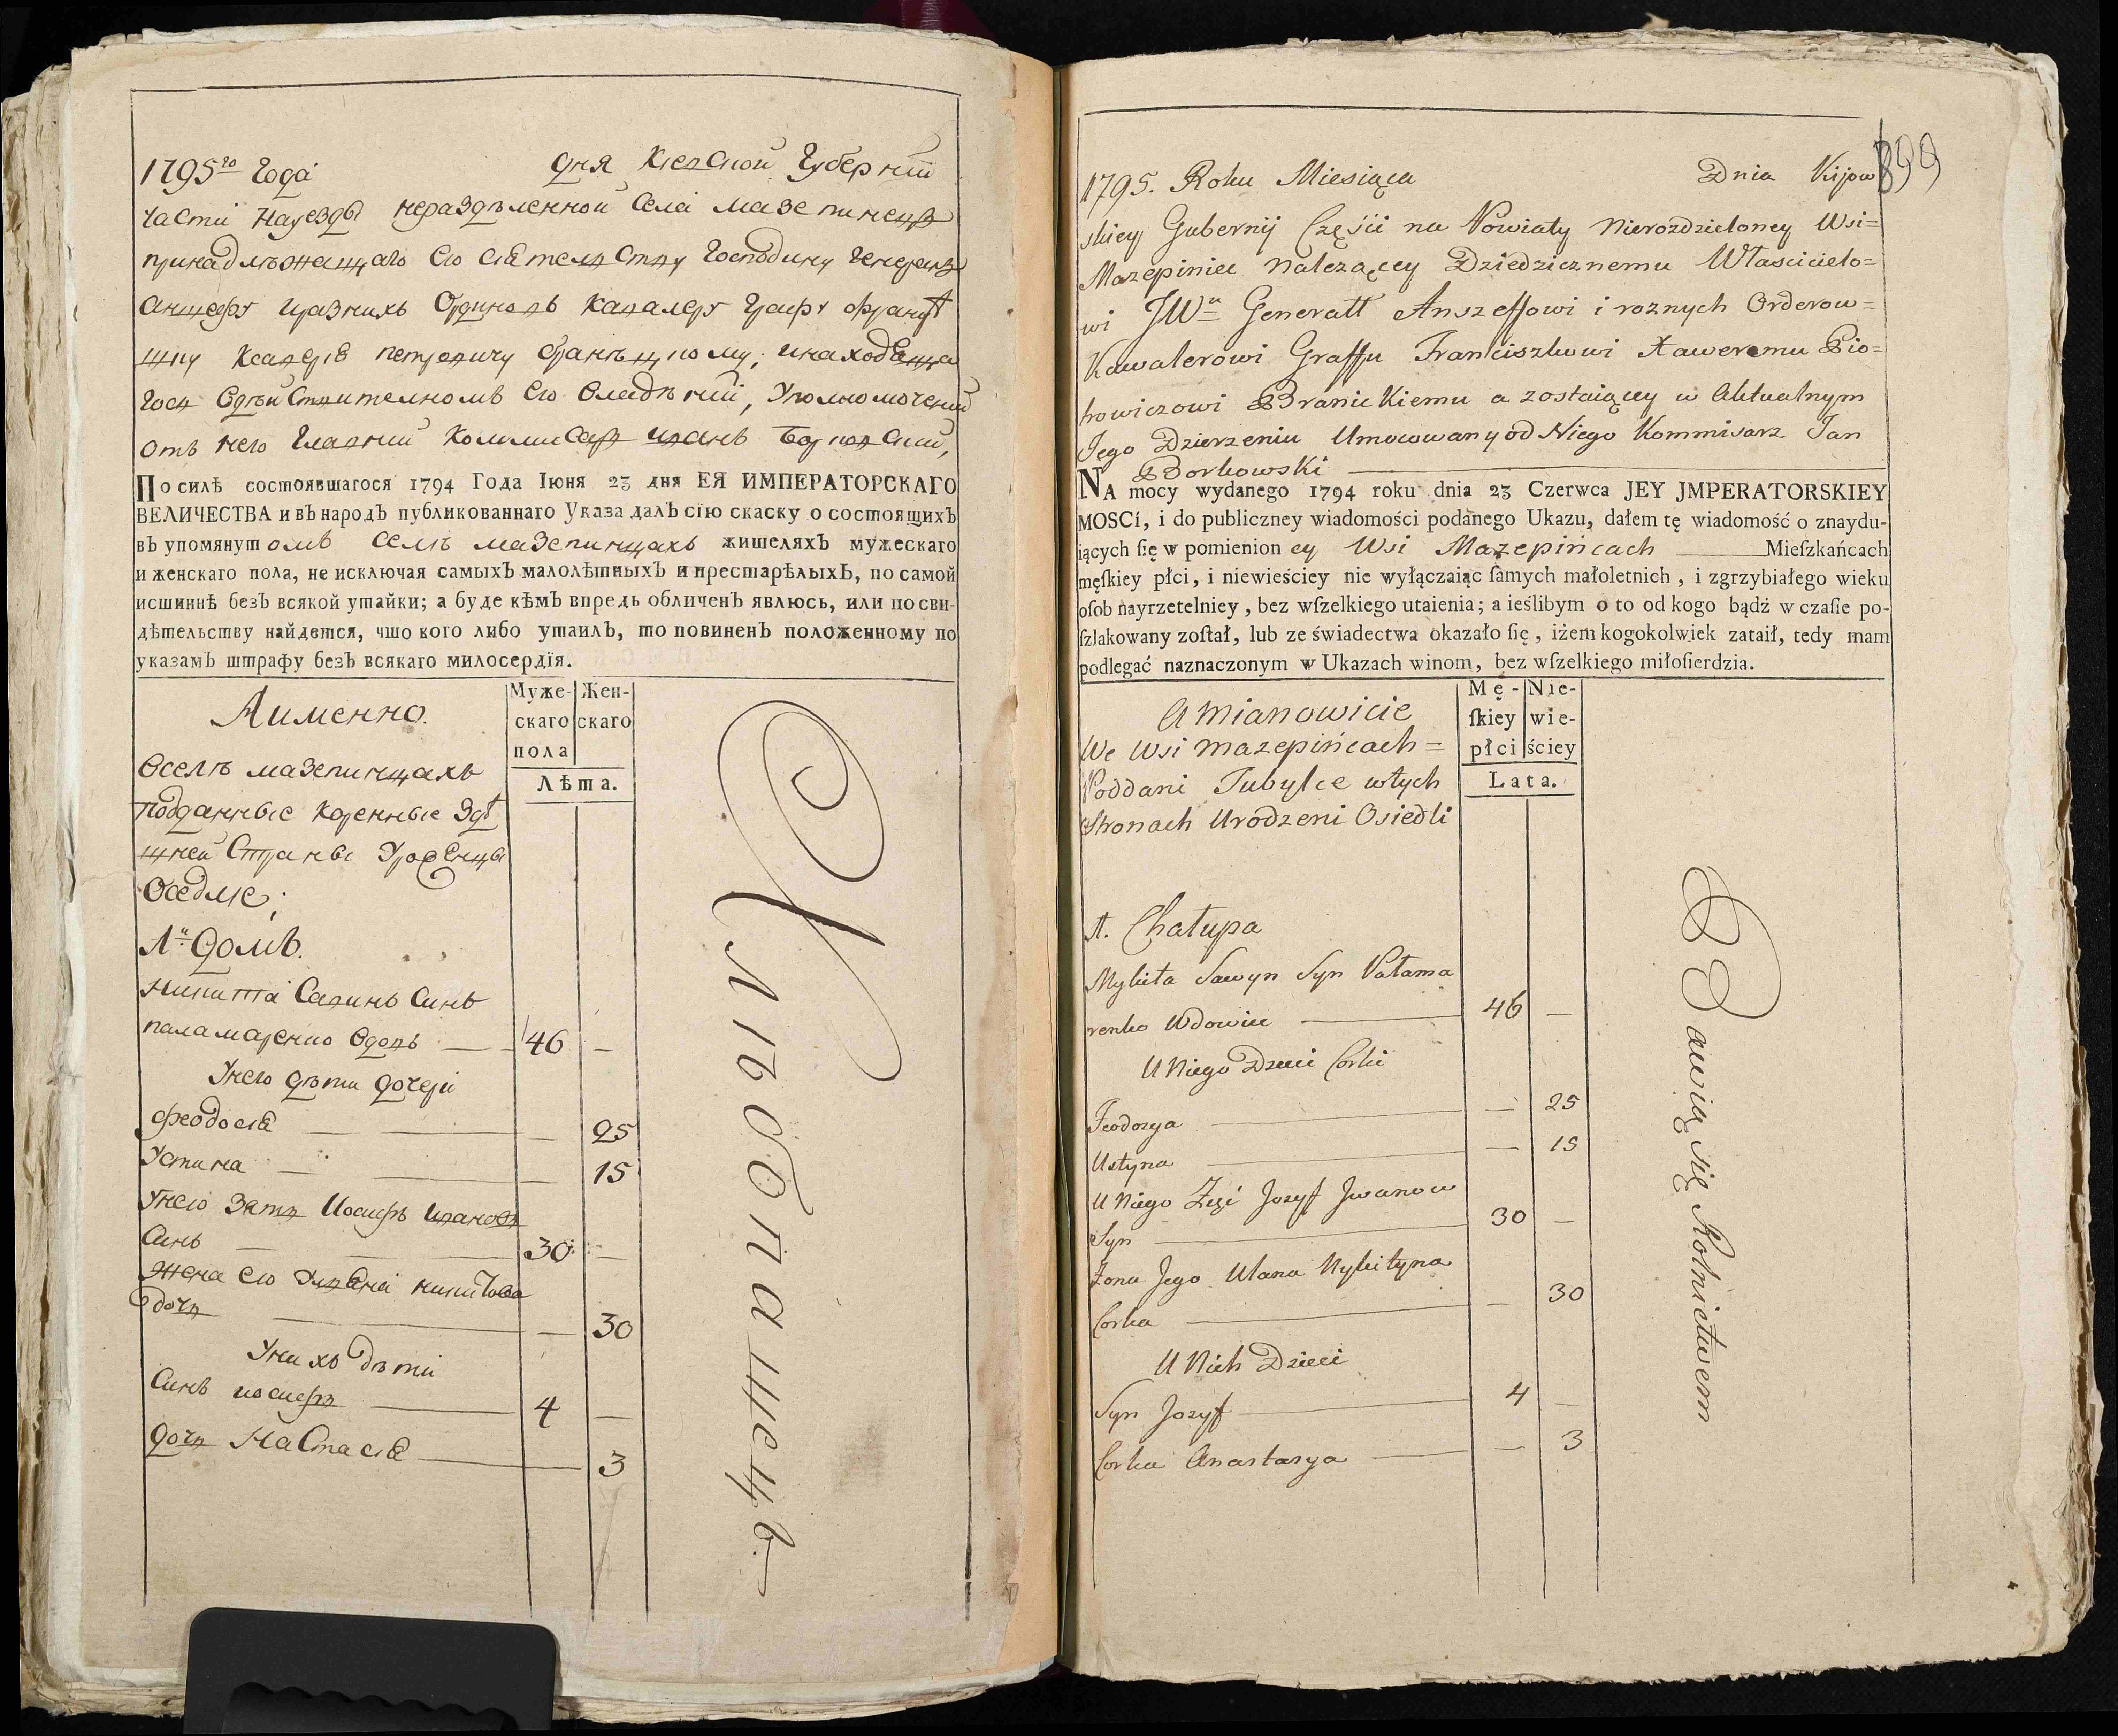 1795го Года дня Киевской Губернии
части Науезды неразделенной Села Мазепинець
принадлѣжащаго Его Сиятельству Господину Генералъ
Аншефу и разнихъ Ординовъ Кавалеру Графу Франц
Ксаверію Петровичу Браницкому,
Его Владѣний, Уполномочений
отъ него Главний Коммисаръ Иванъ Борковский,
По силѣ состоявшагося 1794 Года Іюня 23 дня ЕЯ ИМПЕРАТОРСКАГО
ВЕЛИЧЕСТВА и въ народъ публикованнаго Указа далъ сїю скаску о состоящихъ
въ упомянутомъ селѣ Мазепинцахъ жителяхъ мужескаго
и женскаго пола, не исключая самыхъ малолѣтныхъ и престарѣлыхъ, по самой
истиннѣ безъ всякой утайки; а буде кѣмъ впредь обличенъ явлюсь, или по сви-
дѣтельству найдется, что кого либо утаилъ, то повиненъ положенному по
указамъ штрафу безъ всякаго милосердїя.
Аименно.
Муже-
скаго
пола
Жен-
скаго
Лѣта.
Вселѣ Мазепинцахъ
подданные коренные Здѣ
шней Страны Уроженцы
Оседлие;
Домъ.
Никита Савинъ Синъ
Паламаренко Вдовъ 46 —
Унего дѣти дочери
Феодосия — 25
Устина — 15
Унего Зять Иосифъ Ивановъ
Синъ 30 —
Жена его Улияна Никитова
дочь — 30
Унихъ дѣти
Синъ иосифъ 4 —
дочь Настасия — 3
899
1795. Roku Miesiąca Dnia Kijow
skiey Gubernij Częśii na Powiaty Nierozdzieloney Wsi=
Mazepiniec Nalezącey Dziedzicznemu Własciciolo=
wi JWu Generałł Anszeffowi i roznych Orderow=
Kawalerowi Graffu Franciszkowi Xaweremu Pio=
trowiczowi Branickiemu a zostaiący w Aktualnym
Jego Dzierzeniu Umocowany od Niego Kommisarz Jan
Borkowski
NA mocy wydanego 1794 roku dnia 23 Czerwca JEY JMPERATORSKIEY
MOSCI, i do publiczney wiadomości podanego Ukazu, dałem tę wiadomość o znaydu-
iących ſię w pomienioney Wsi Mazepińcach Mieſzkańcach
męſkiey płci, i niewieściey nie wyłączaiąc ſamych małoletnich, i zgrzybiałego wieku
oſob nayrzetelniey, bez wſzelkiego utaienia; a ieślibym o to od kogo bądź w czaſie po-
ſzlakowany zoſtał, lub ze świadectwa okazało ſię, iżem kogokolwiek zataił, tedy mam
podlegać naznaczonym w Ukazach winom, bez wſzelkiego miłoſierdzia.
A Mianowicie
Mę-
ſkiey
płci
Nie-
wie-
ściey
Lata.
We Wsi Mazepińcach=
Poddani Tubylce wtych
Stronach Urodzeni Osiedli
Chałupa
Mykita Sawyn Syn Pałama
renko Wdowiec 46 —
U Niego Dzieci Corki
Feodosya — 25
Ustyna — 15
U Niego Zięć Jozyf Jwanow
Syn 30 —
Zona Jego Ulana Mykityna
Corka — 30
U Nich Dzieci
Syn Jozyf 4 —
Corka Anastasya — 3
Bawią się Rolnictwem